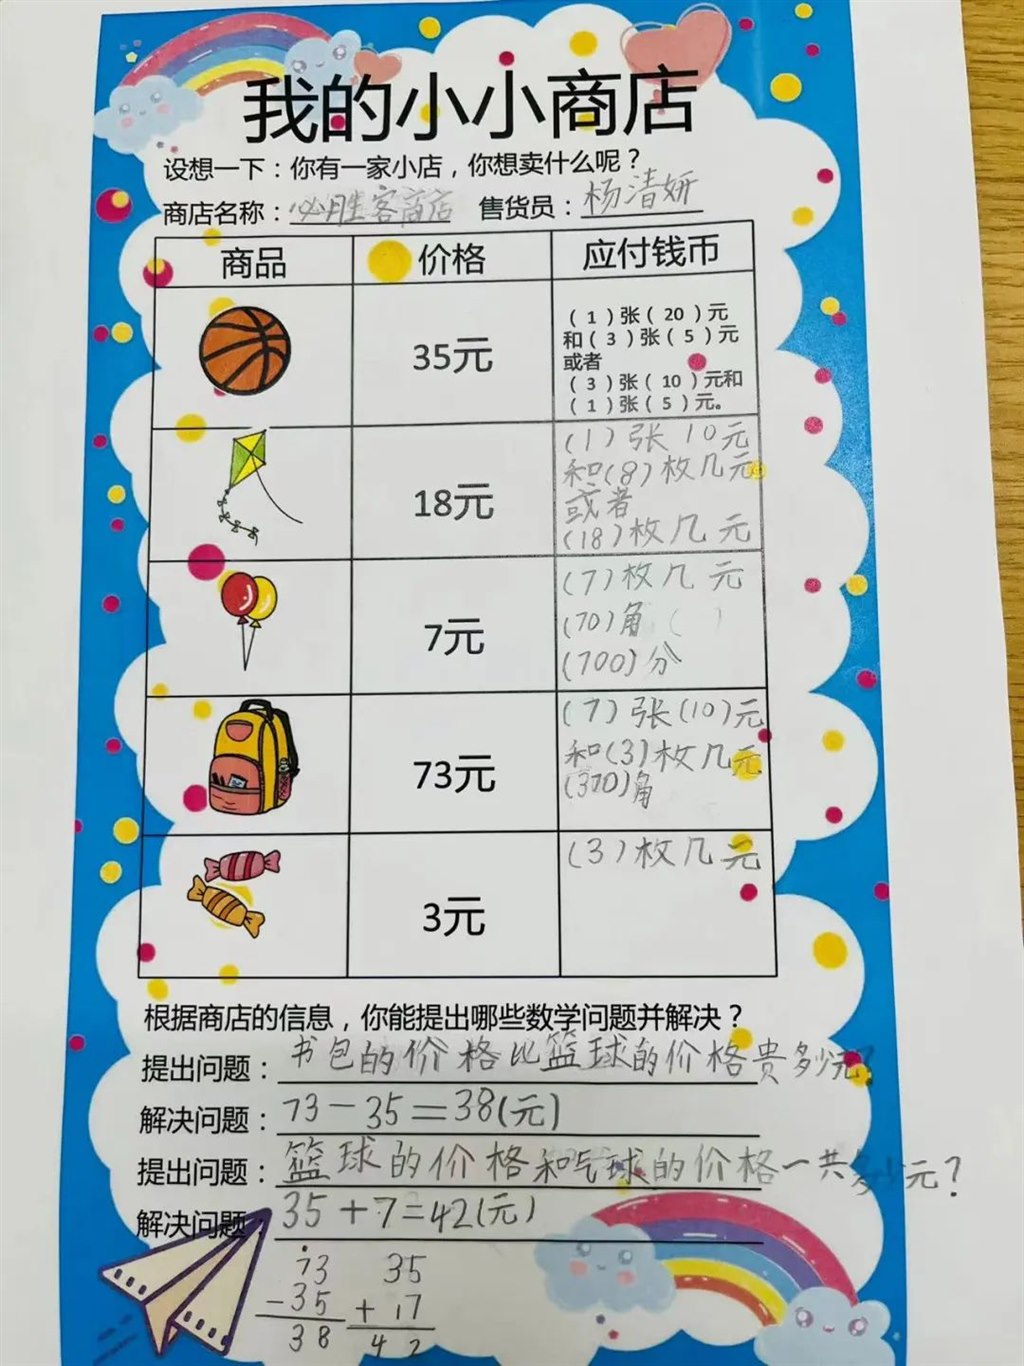 我的小小商店
设想一下：你有一家小店，你想卖什么呢？
商店名称：必胜客商店 售货员：杨清妍
商品 价格 应付钱币
35元
（1）张（20）元
和（3）张（5）元
或者
（3）张（10）元和
（1）张（5）元。
18元
(1)张10元
和(8)枚几元
或者
(18)枚几元
7元
(7)枚几元
(70)角（ ）
(700)分
73元
(7)张(10)元
和(3)枚几元
角
3元
(3)枚几元
根据商店的信息，你能提出哪些数学问题并解决？
提出问题：书包的价格比篮球的价格贵多少元？
解决问题：73-35=38(元)
提出问题：篮球的价格和气球的价格一共多少元？
解决问题：35+7=42(元)
73 35
-35 + 7
38 42